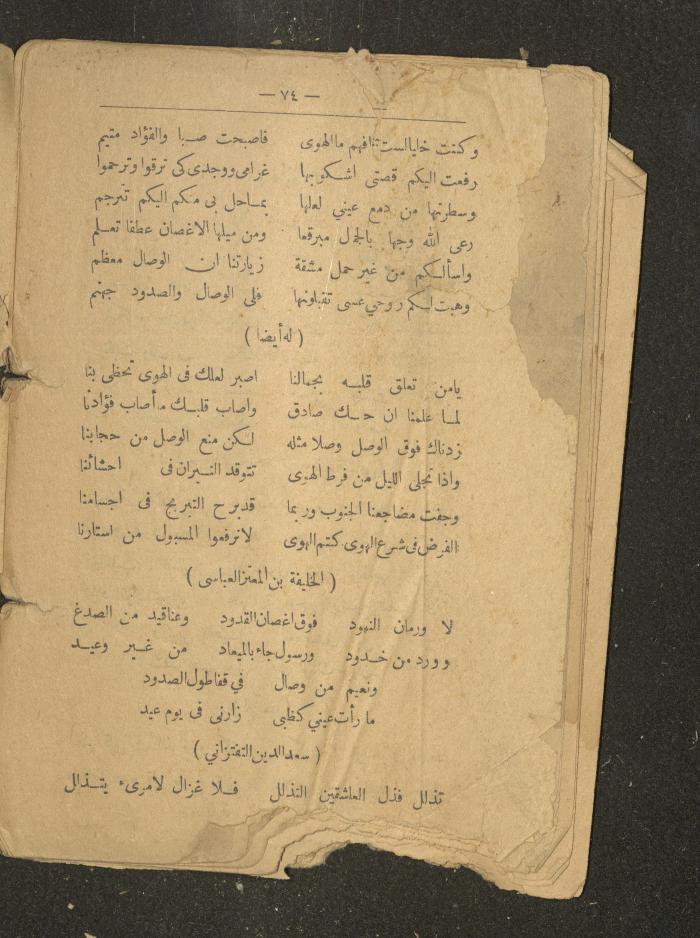 — ٧٤ —
وكنت خليا لست افهم ما الهوى فاصبحت صبا والفؤاد متيم
رفعت اليكم قصتى اشكو بها غرامى ووجدى كى ترقوا وترحموا
وسطرتها من دمع عيني لعلها بماحل بى منكم اليكم تترجم
رعى الله وجها بالجمال مبرقعا ومن ميلها الاغصان عطفا تعلم
واسألكم من غير حمل مشقة زيارتنا ان الوصال معظم
وهبت لكم روحي عسى تقبلونها فلى الوصال والصدود جهنم
( له أيضا )
يامن تعلق قلبه بجمالنا اصبر لعلك فى الهوى تحظى بنا
لما علمنا ان حبك صادق واصاب قلبك ما أصاب فؤادنا
زدناك فوق الوصل وصلا مثله لكن منع الوصل من حجابنا
واذا تجلى الليل من فرط الهوى تتوقد النيران فى احشائنا
وجفت مضاجعنا الجنوب وربما قد برح التبريح فى اجسامنا
الفرض فى شرع الهوى كتم الهوى لا ترفعوا المسبول من استارنا
( الخليفة بن المعتز العباسى )
لا ورمان النهود فوق اغصان القدود وعناقيد من الصدغ
وورد من خدود ورسول جاء بالميعاد من غير وعيد
ونعيم من وصال في قفا طول الصدود
ما رأت عيني كظبى زارنى فى يوم عيد
( سعد الدين التفتزاني )
تذلل فذل العاشقين التذلل فلا غزال لامرىء يتذلل